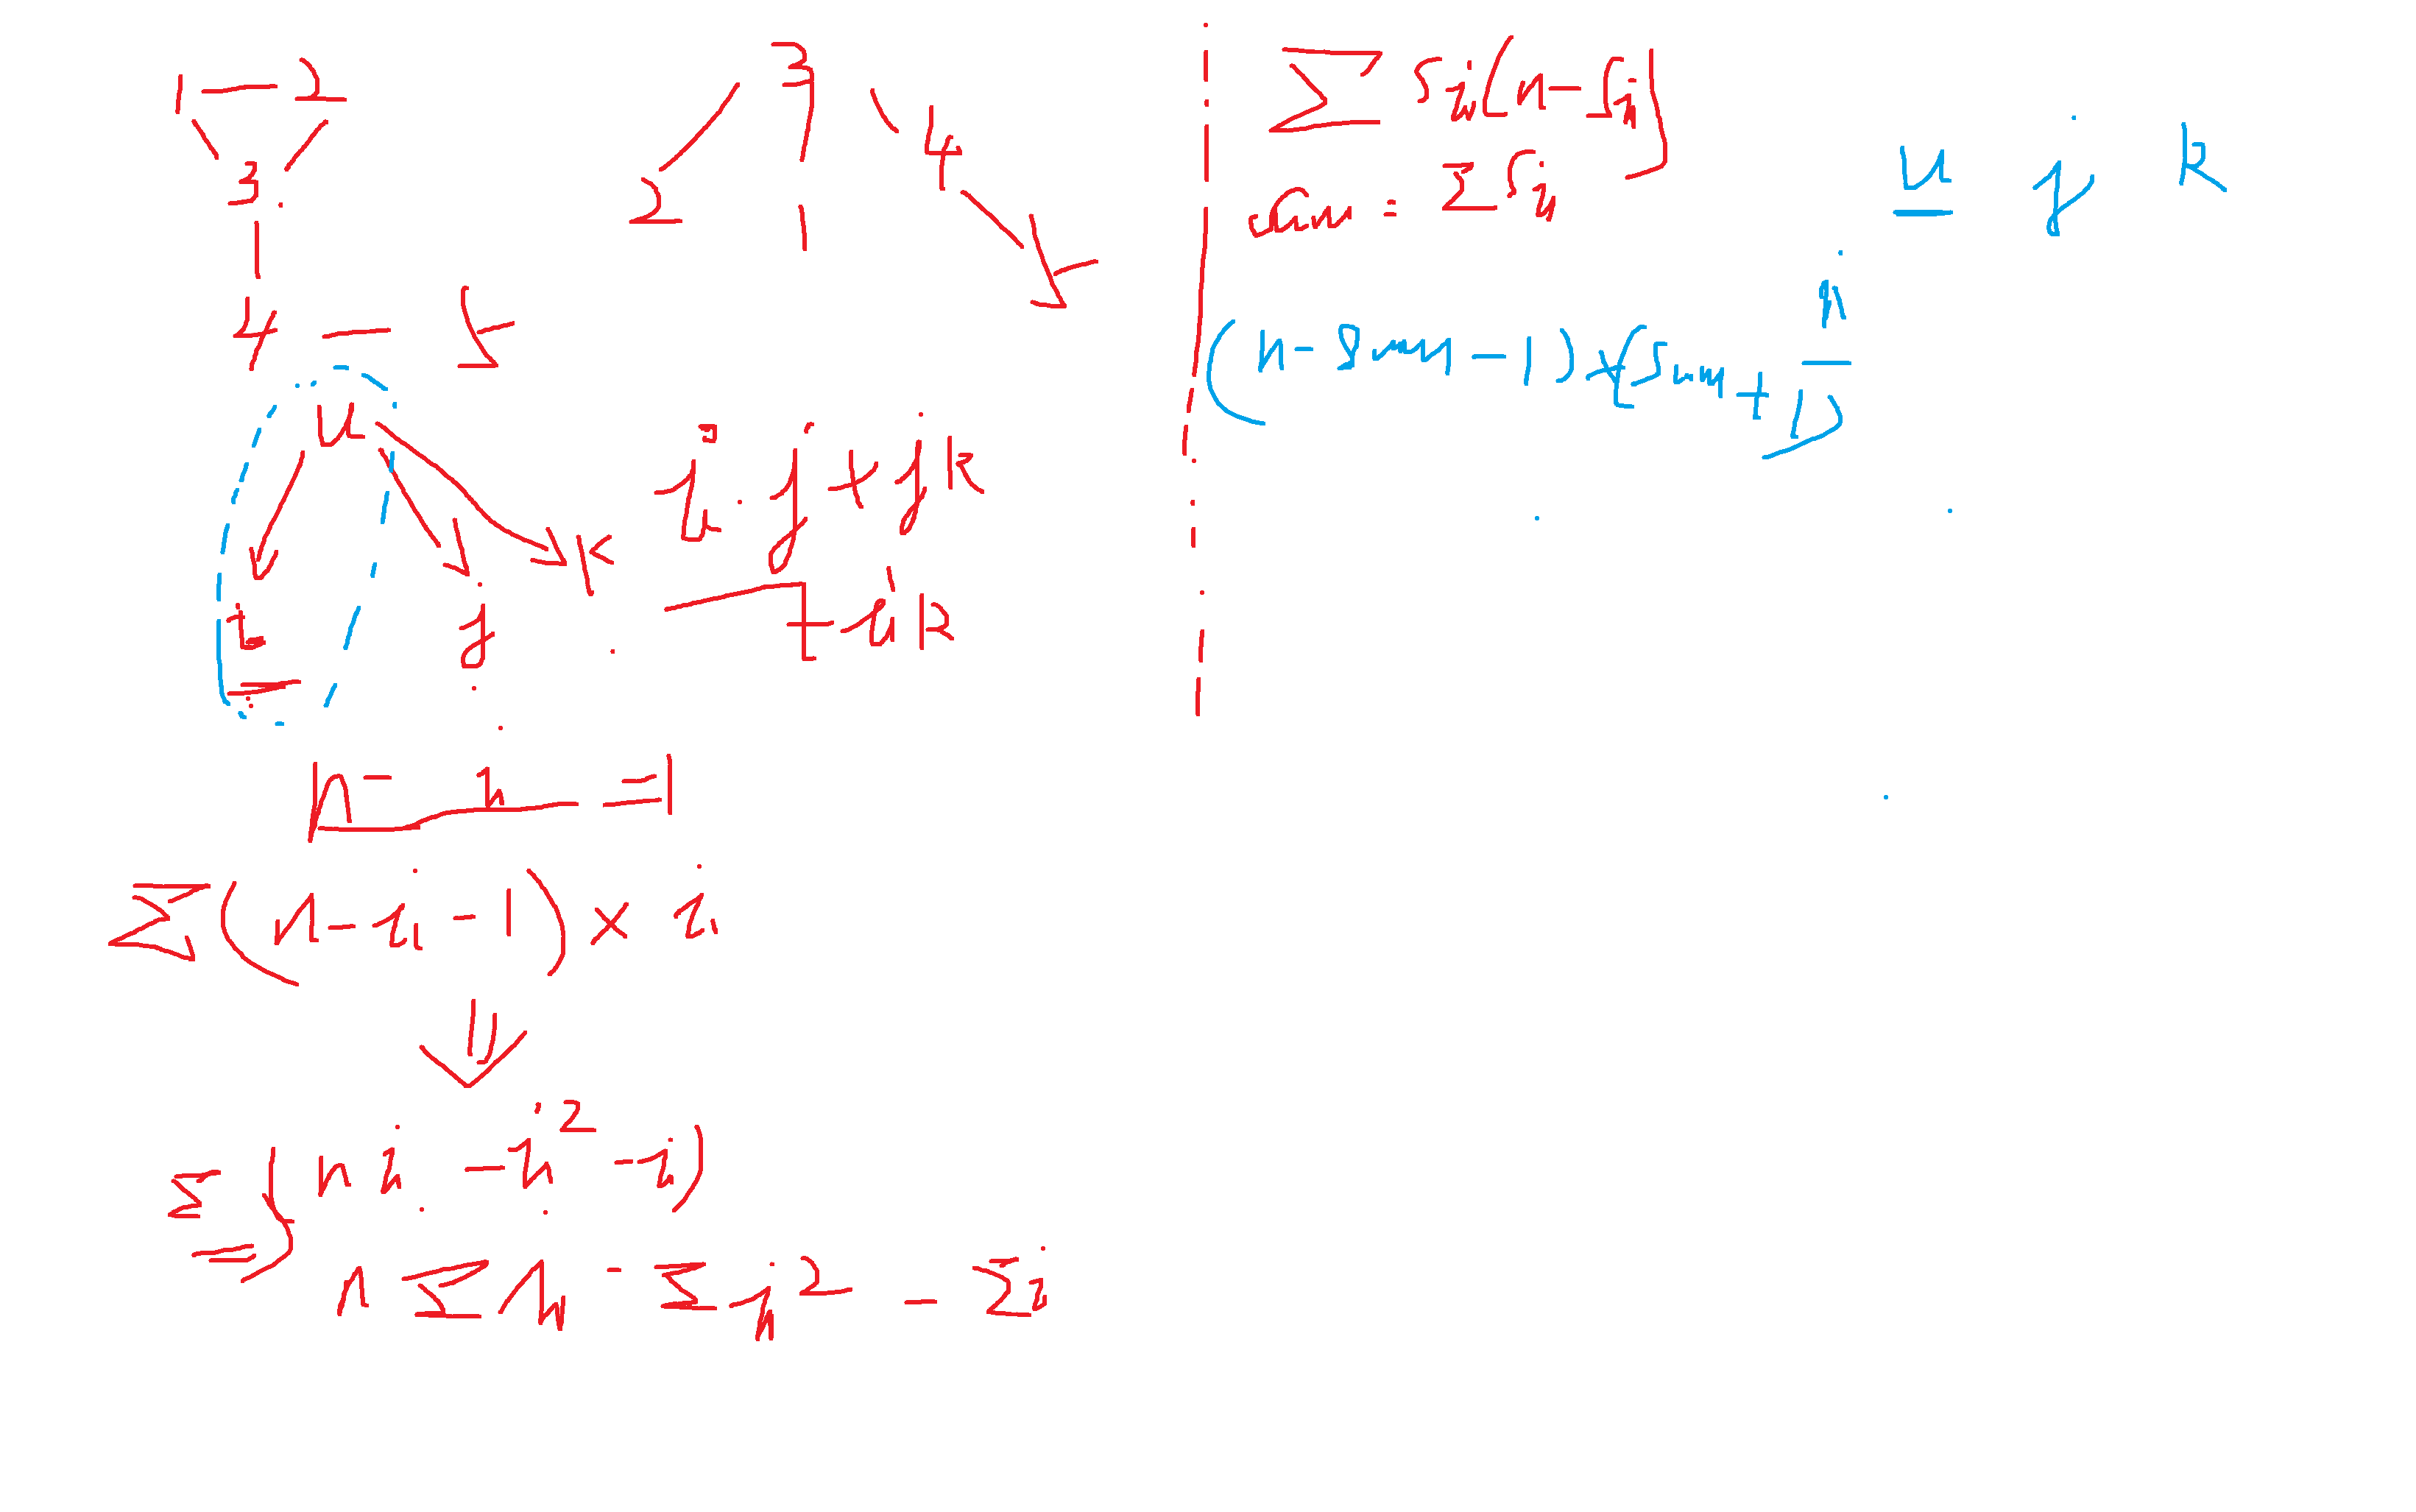 1 — 2
3
4 — 5
3
2 1 4
5
u
i j k
i · j + jk
+ ik
n - i - 1
Σ(n - i - 1) × i
⇓
Σ(ni - i² - i)
nΣi - Σi² - Σi
Σ Si(n - Si)
sum = ΣSi
(n - sum - 1) × (sum + 1)
u j k